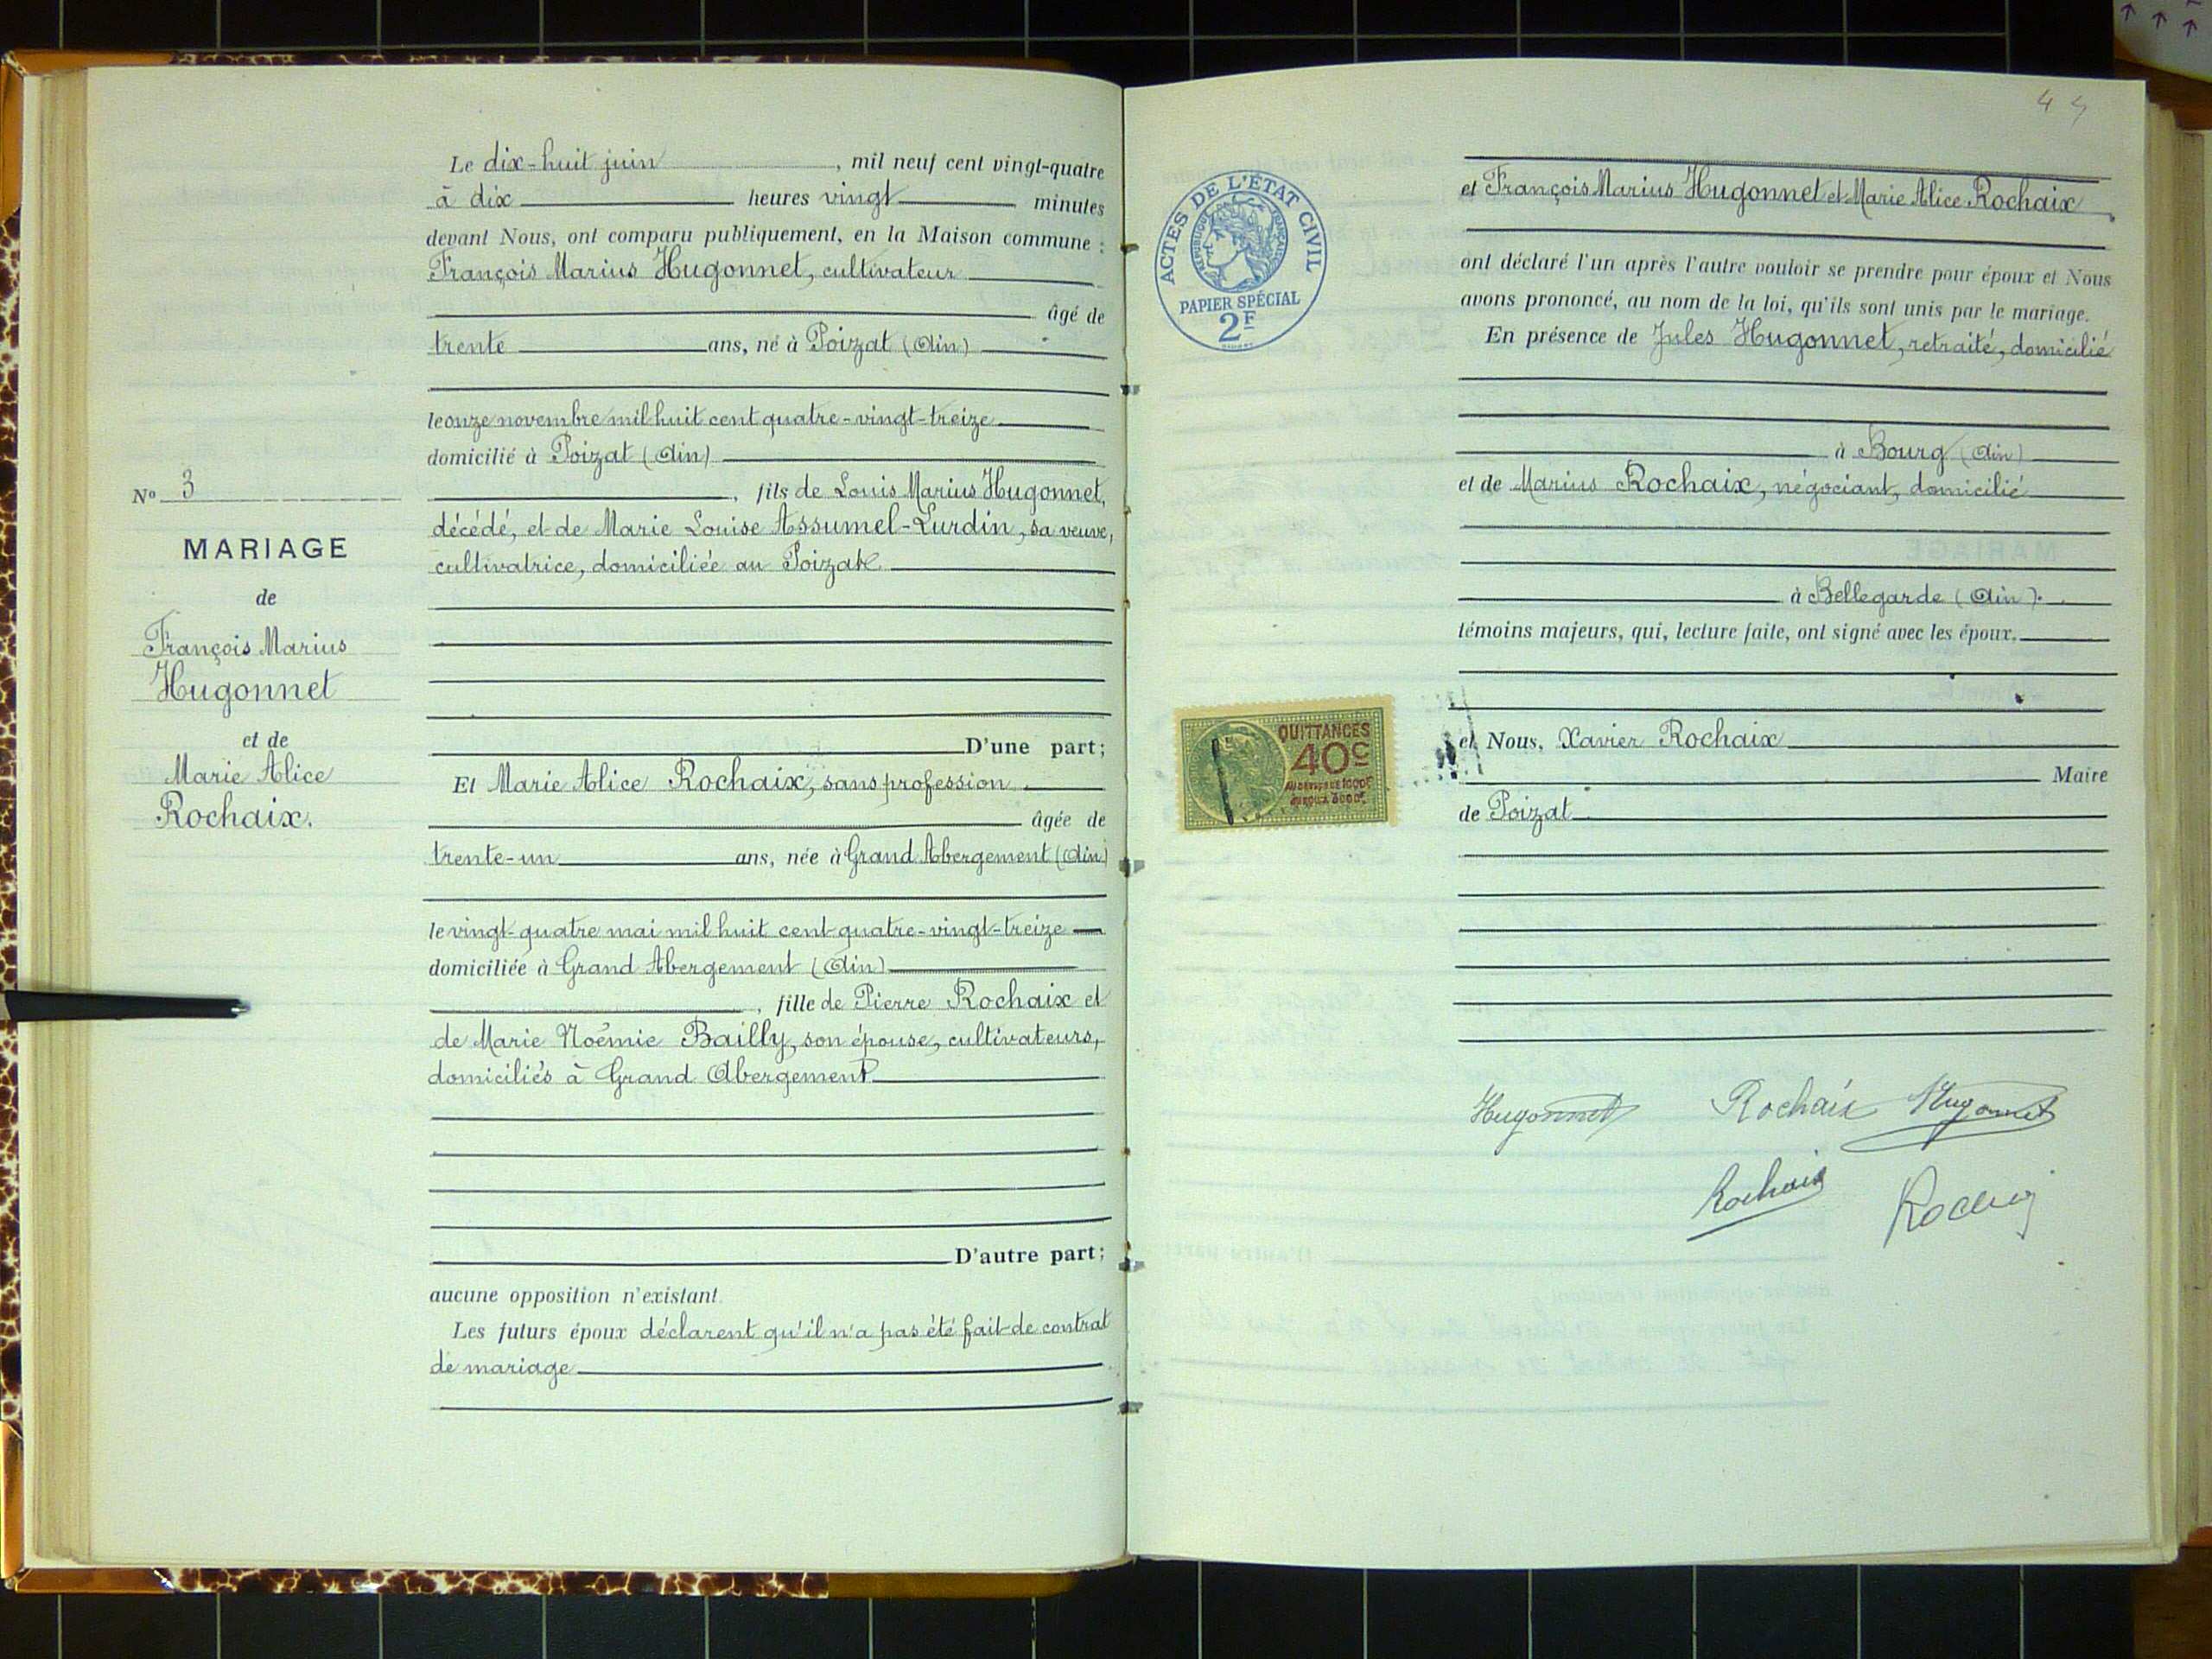 Le dix-huit juin, mil neuf cent vingt-quatre
à dix heures vingt minutes
devant Nous, ont comparu publiquement, en la Maison commune :
François Marius Hugonnet, cultivateur
âgé de
trente ans, né à Poizat (Ain)
le onze novembre mil huit cent quatre-vingt-treize
domicilié à Poizat (Ain)
, fils de Louis Marius Hugonnet,
décédé, et de Marie Louise Assumel-Lurdin, sa veuve,
cultivatrice, domiciliée au Poizat.
D'une part;
Et Marie Alice Rochaix, sans profession
âgée de
trente-un ans, née à Grand Abergement (Ain)
le vingt-quatre mai mil huit cent quatre-vingt-treize
domiciliée à Grand Abergement (Ain)
, fille de Pierre Rochaix et
de Marie Noémie Bailly, son épouse, cultivateurs,
domiciliés à Grand Abergement
D'autre part;
aucune opposition n'existant.
Les futurs époux déclarent qu'il n'a pas été fait de contrat
de mariage
No 3
MARIAGE
de
François Marius
Hugonnet
et de
Marie Alice
Rochaix.
44
ACTES DE L'ÉTAT CIVIL
RÉPUBLIQUE FRANÇAISE
PAPIER SPÉCIAL
2F
et François Marius Hugonnet et Marie Alice Rochaix
ont déclaré l'un après l'autre vouloir se prendre pour époux et Nous
avons prononcé, au nom de la loi, qu'ils sont unis par le mariage.
En présence de Jules Hugonnet, retraité, domicilié
à Bourg (Ain)
et de Marius Rochaix, négociant, domicilié
à Bellegarde (Ain).
témoins majeurs, qui, lecture faite, ont signé avec les époux.
QUITTANCES
40c
AU DESSUS DE 1000F
JUSQU'A 3000F
et Nous, Xavier Rochaix
Maire
de Poizat
Hugonnet Rochaix Hugonnet
Rochaix